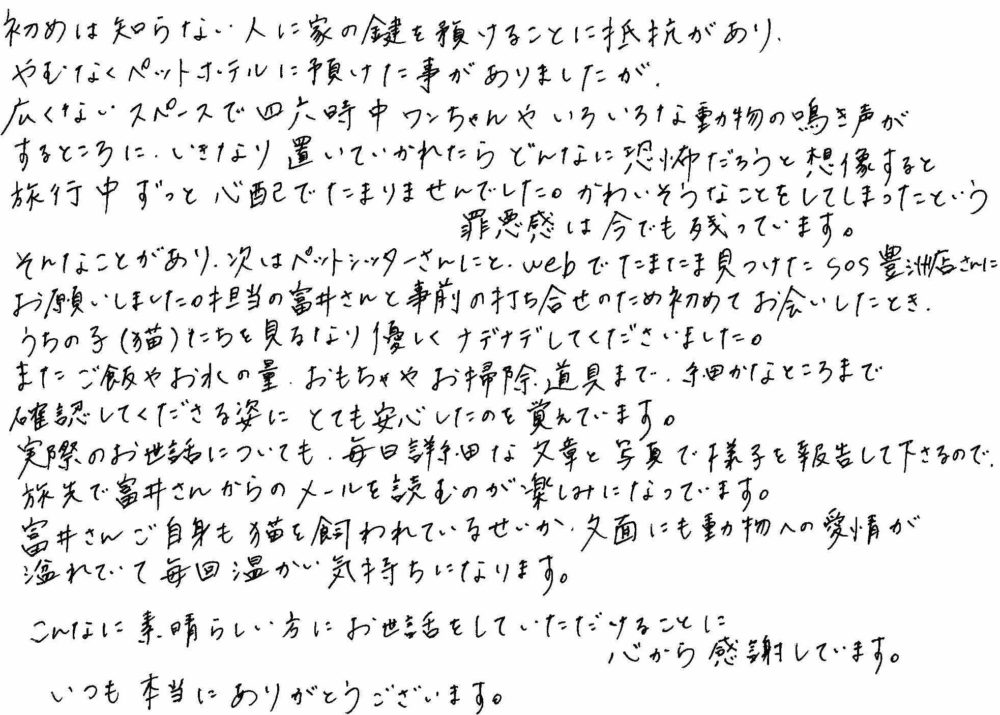 初めは知らない人に家の鍵を預けることに抵抗があり、
やむなくペットホテルに預けた事がありましたが、
広くないスペースで四六時中ワンちゃんやいろいろな動物の鳴き声が
するところに、いきなり置いていかれたらどんなに恐怖だろうと想像すると
旅行中ずっと心配でたまりませんでした。かわいそうなことをしてしまったという
罪悪感は今でも残っています。
そんなことがあり、次はペットシッターさんにと、webでたまたま見つけたSOS豊洲店さんに
お願いしました。担当の富井さんと事前の打ち合せのため初めてお会いしたとき、
うちの子(猫)たちを見るなり優しくナデナデしてくださいました。
またご飯やお水の量、おもちゃやお掃除道具まで、細かなところまで
確認してくださる姿にとても安心したのを覚えています。
実際のお世話についても、毎日詳細な文章と写真で様子を報告して下さるので、
旅先で富井さんからのメールを読むのが楽しみになっています。
富井さんご自身も猫を飼われているせいか、文面にも動物への愛情が
溢れていて毎回温かい気持ちになります。
こんなに素晴らしい方にお世話をしていただけることに
心から感謝しています。
いつも本当にありがとうございます。